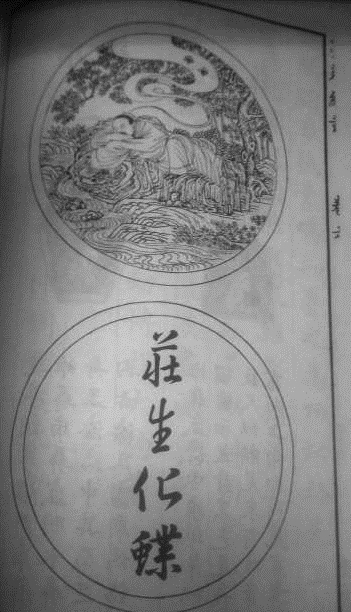 莊生化蝶